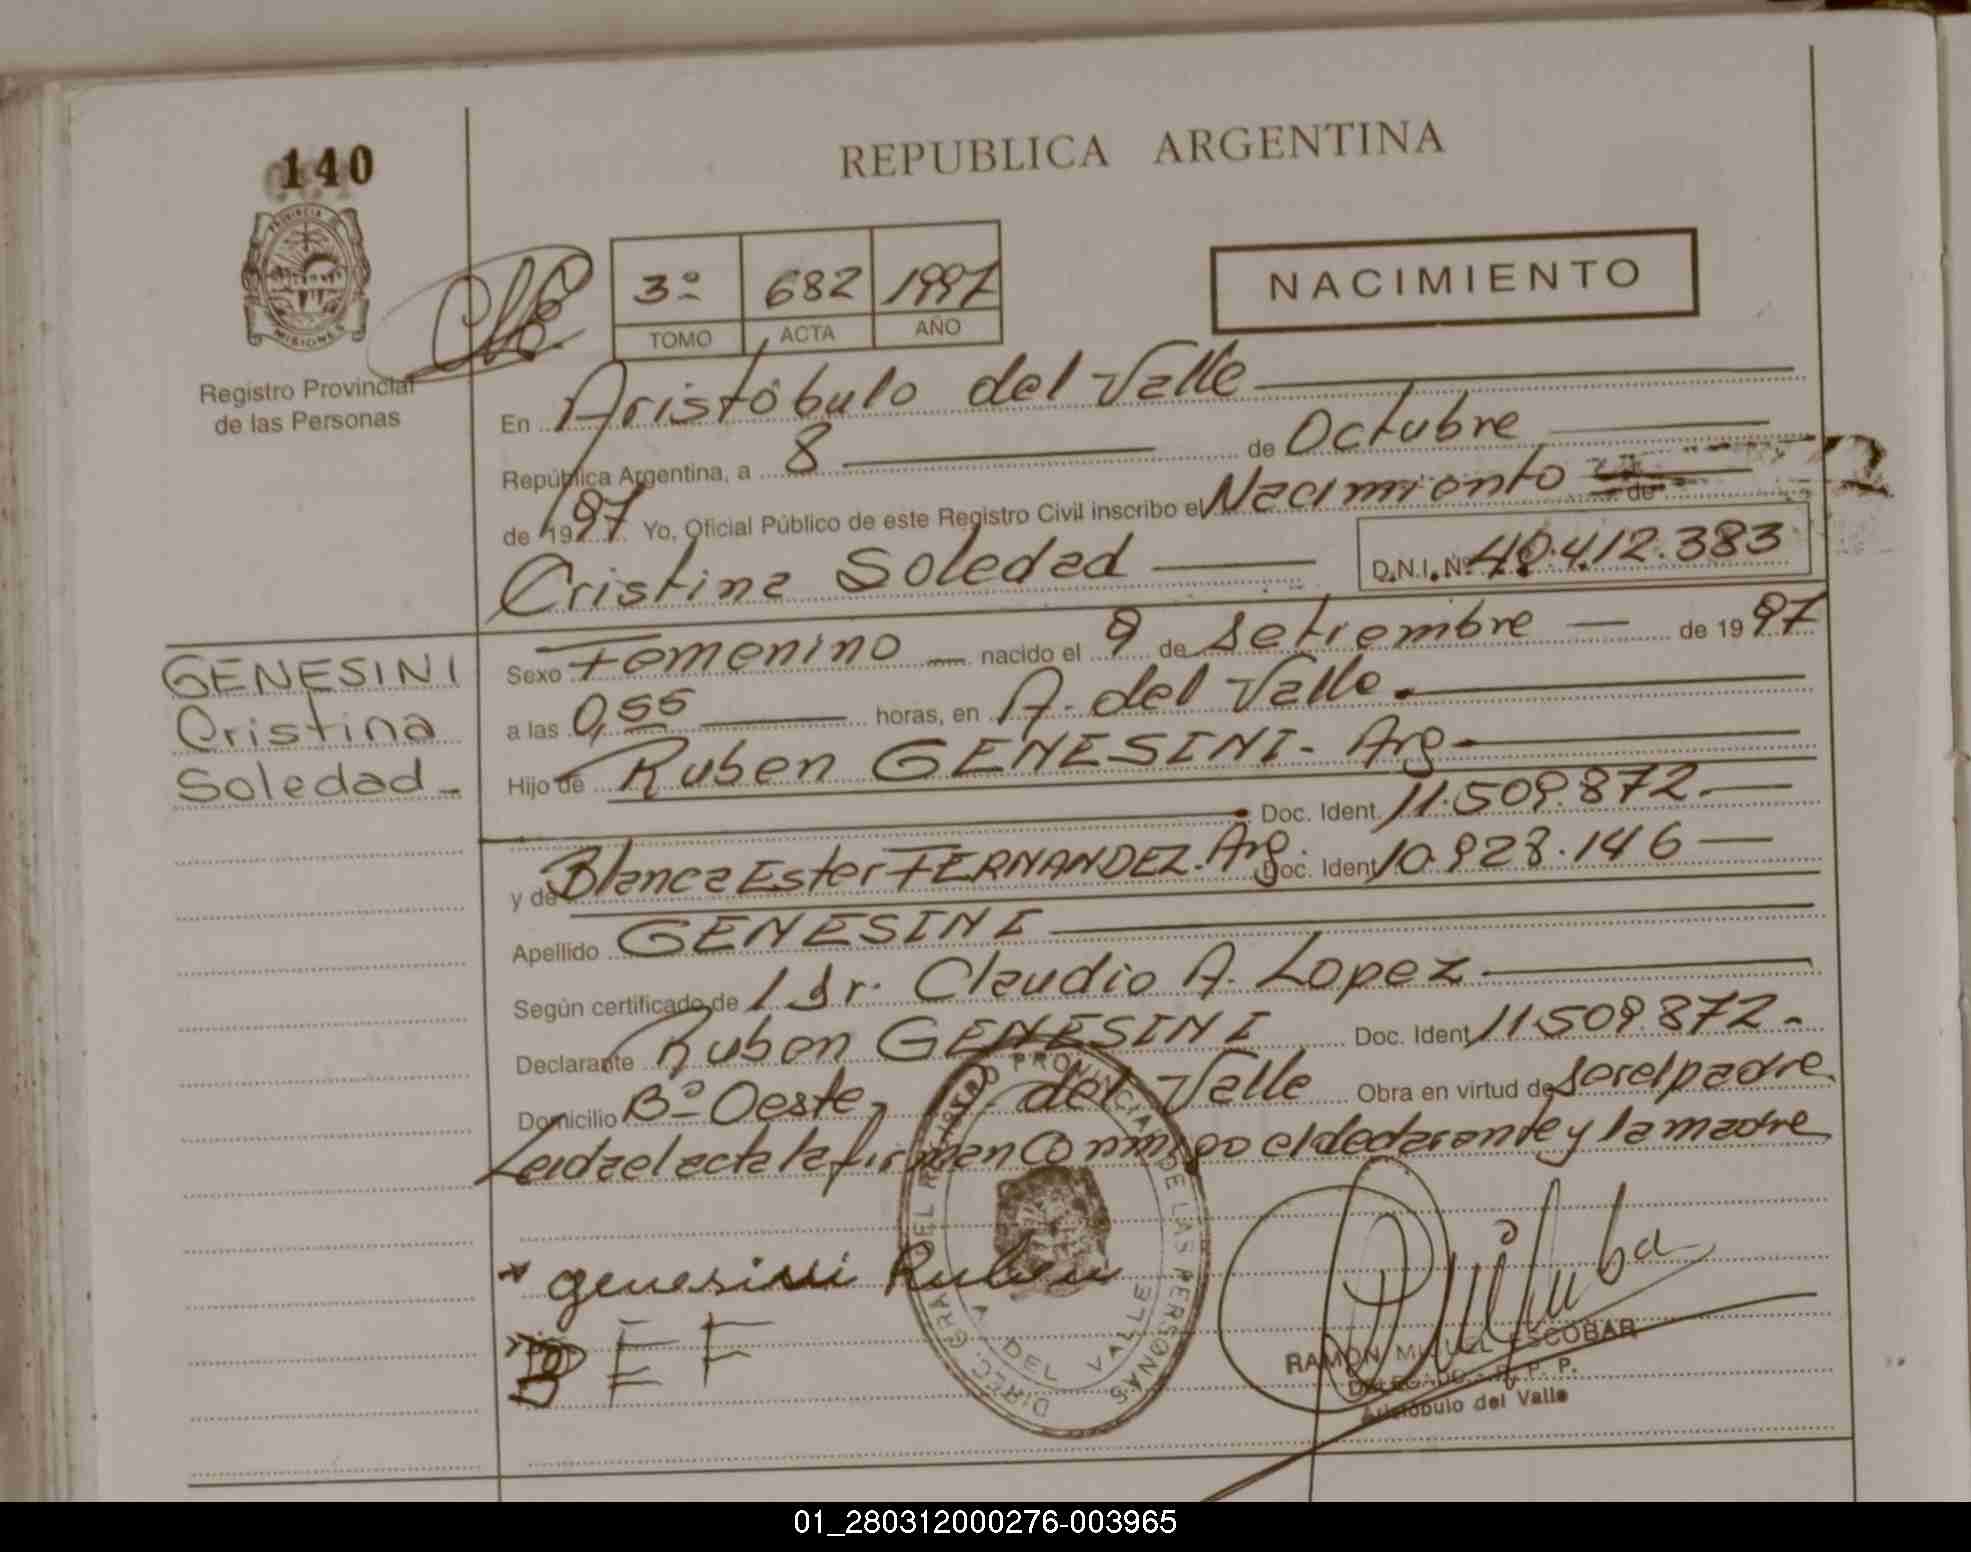 140
PROVINCIA DE
MISIONES
Registro Provincial
de las Personas
REPUBLICA ARGENTINA
3º 682 1997
TOMO ACTA AÑO
NACIMIENTO
En Aristóbulo del Valle
República Argentina, a 8 de Octubre
de 1997 Yo, Oficial Público de este Registro Civil inscribo el Nacimiento de
Cristina Soledad D.N.I. Nº 40.412.383
GENESINI
Cristina
Soledad
Sexo Femenino nacido el 9 de Setiembre de 1997
a las 0,55 horas, en A. del Valle.
Hijo de Ruben GENESINI - Arg
Doc. Ident. 11.509.872.
y de Blanca Ester FERNANDEZ. Arg. Doc. Ident 10.928.146
Apellido GENESINI
Según certificado de / Dr. Claudio A. Lopez
Declarante Ruben GENESINI Doc. Ident 11.509.872.
Domicilio Bº Oeste, A. del Valle Obra en virtud de ser el padre.
Leida el acta la firman conmigo el declarante y la madre
genesini Ruben
B E F
DIREC. GRAL. DEL REGISTRO PROVINCIAL DE LAS PERSONAS
A. DEL VALLE
RAMON MIGUEL ESCOBAR
DELEGADO R. P. P.
Aristóbulo del Valle
01_280312000276-003965